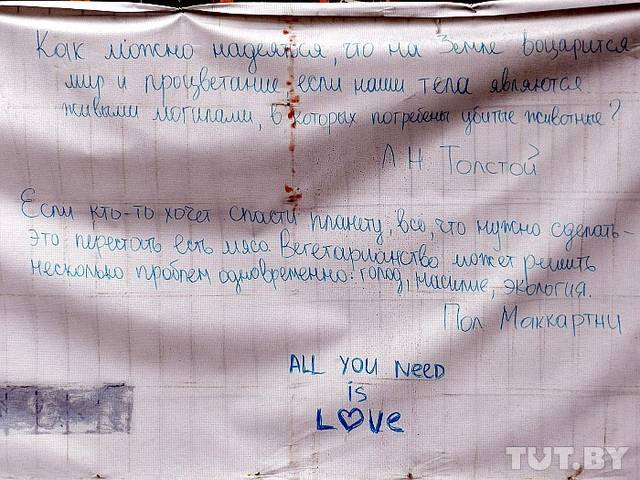 Как можно надеяться, что на Земле воцарится
мир и процветание, если наши тела являются
живыми могилами, в которых погребены убитые животные?
Л.Н. Толстой
Если кто-то хочет спасти планету, всё, что нужно сделать -
это перестать есть мясо. Вегетарианство может решить
несколько проблем одновременно: голод, насилие, экология.
Пол Маккартни
ALL YOU NeeD
is
L♡Ve
TUT.BY